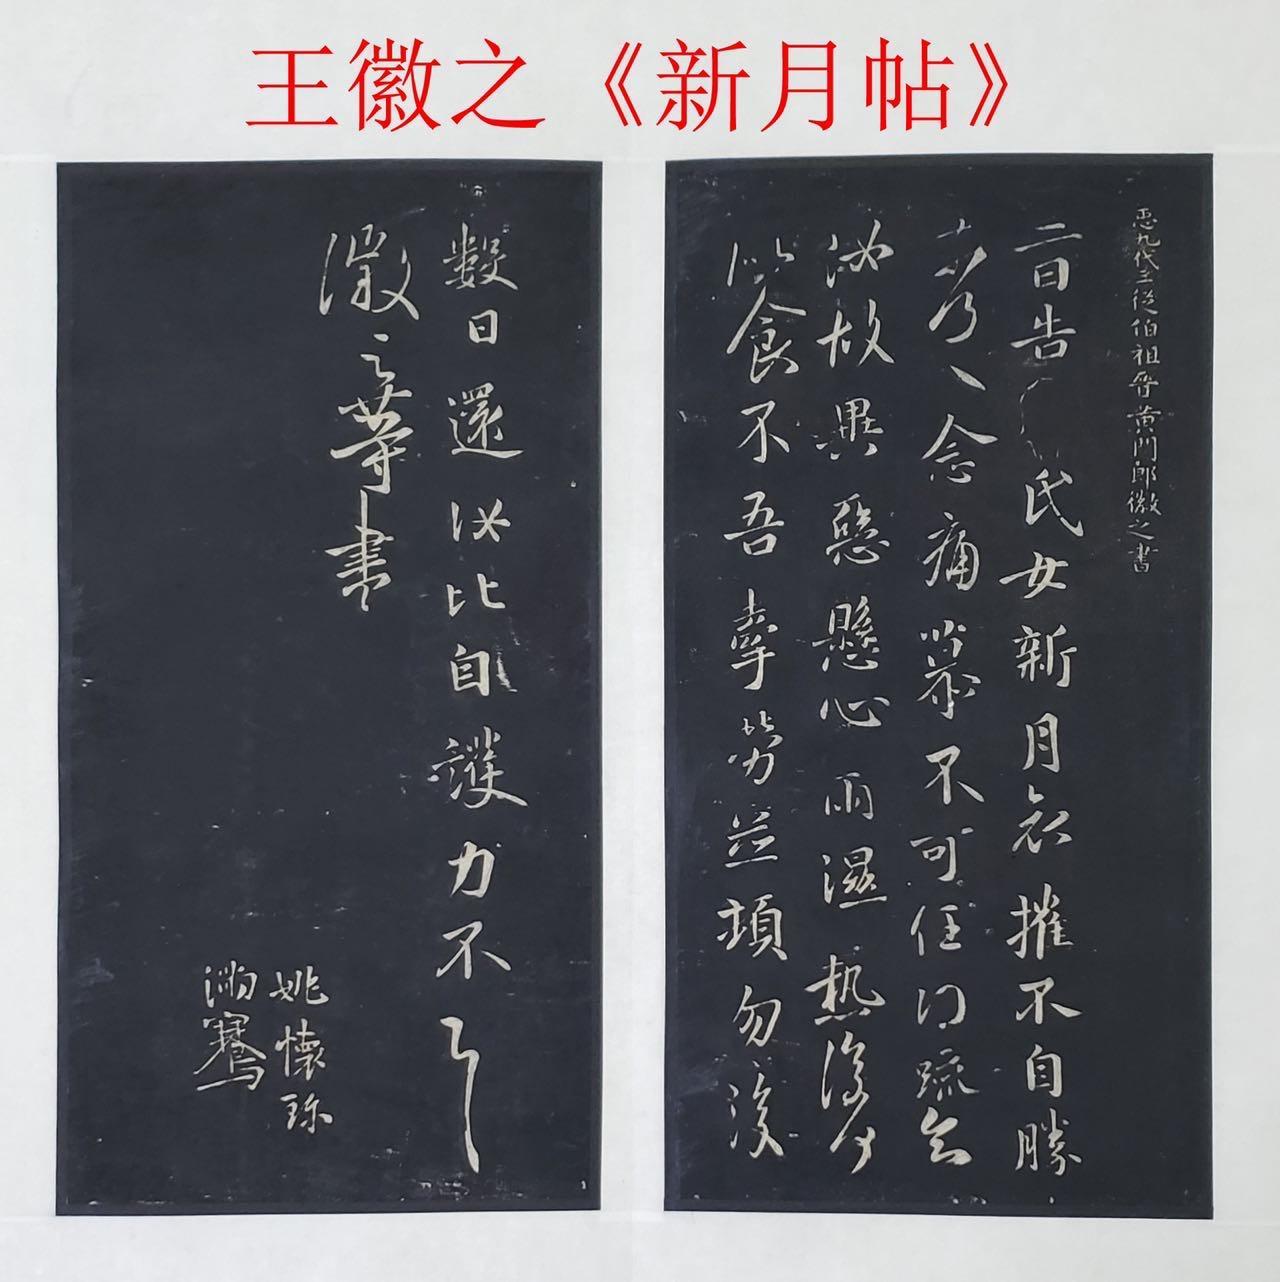 王徽之《新月帖》
臣九代三從伯祖晉黄門郎徽之書
二日告氏女新月哀摧不自勝
奈何奈何念痛慕不可任得疏知
汝故異惡懸心雨濕熱復何
似食不吾牽勞並頓勿復
數日還汝比自護力不
徽之等書
姚懷珍
滿騫